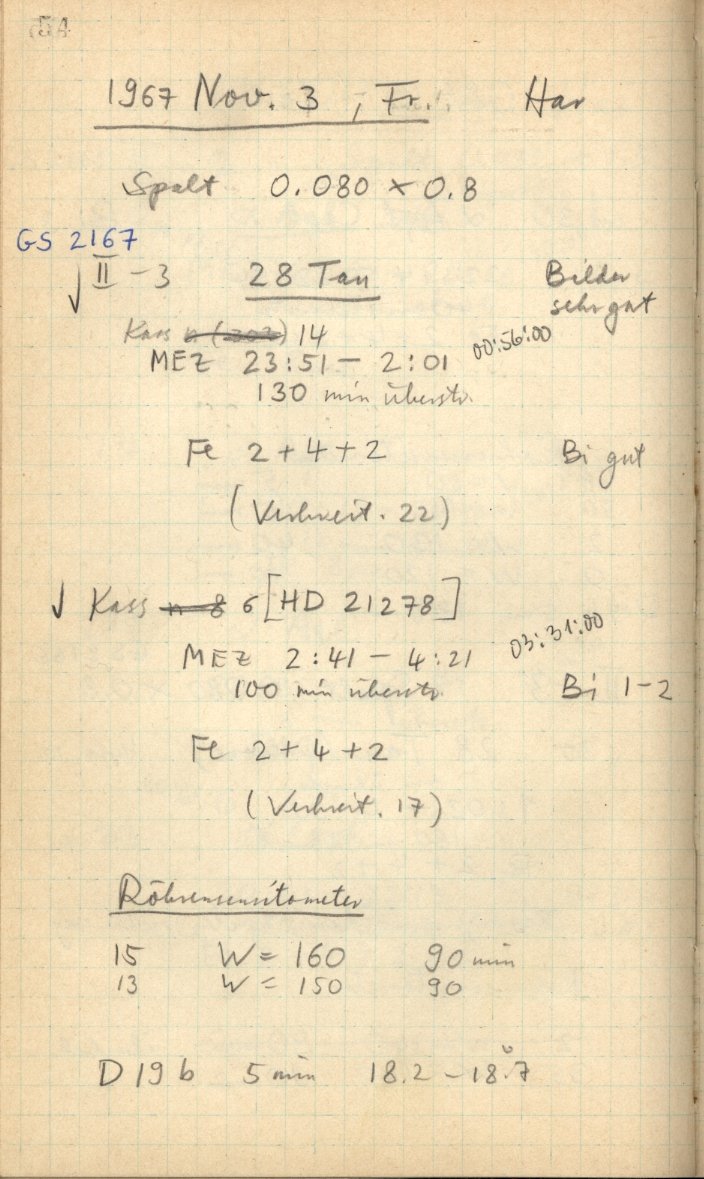 54
1967 Nov. 3, Fr. Har
Spalt 0.080 × 0.8
GS 2167
II - 3 28 Tau Bilder
sehr gut
Kass 14
MEZ 23:51 - 2:01 00:56:00
130 min überstr.
Fe 2+4+2 Bi gut
(Verbreit. 22)
Kass n 8 6 [HD 21278]
MEZ 2:41 - 4:21 03:31:00
100 min überstr. Bi 1-2
Fe 2+4+2
(Verbreit. 17)
Röhrensensitometer
15 W = 160 90 min
13 W = 150 90
D 19 b 5 min 18.2 - 18.7